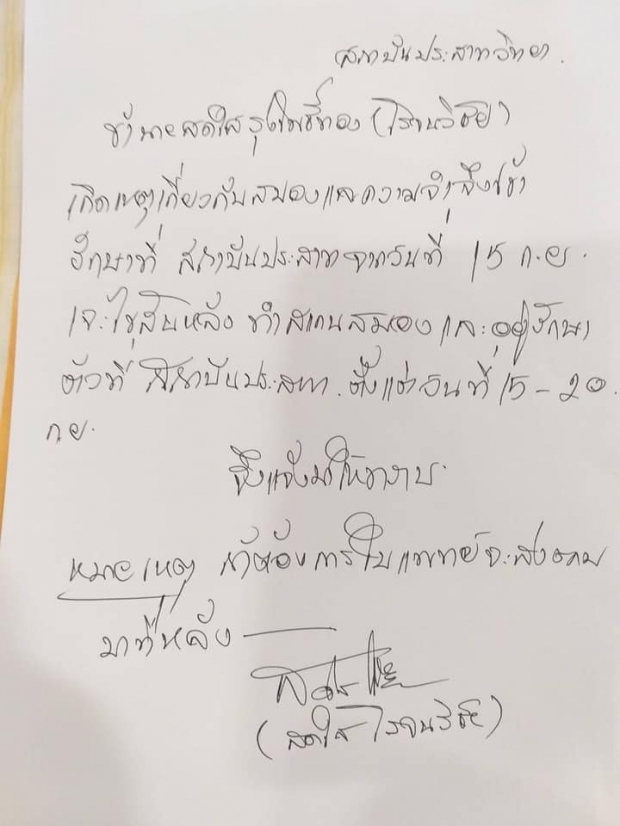 สถาบันประสาทวิทยา.
ข้าพเจ้าสดใส รุ่งโพธิ์ทอง (โรจนวิชัย)
เกิดเหตุเกี่ยวกับสมองและความจำจึงเข้า
รักษาที่ สถาบันประสาทจากวันที่ 15 ก.ย.
เจาะไขสันหลัง ทำสแกนสมอง และอยู่รักษา
ตัวที่ สถาบันประสาท. ตั้งแต่วันที่ 15 - 20
ก.ย.
จึงแจ้งมาให้ทราบ
หมายเหตุ ถ้าต้องการใบแพทย์จะส่งตาม
มาทีหลัง
(สดใส โรจนวิชัย)